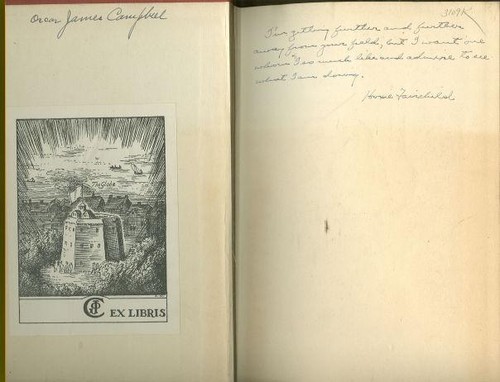 Oscar James Campbell
The Globe
EX LIBRIS
3109K
I'm getting further and further
away from your field, but I want one
whom I so much like and admire to see
what I am doing.
Hoxie Fairchild